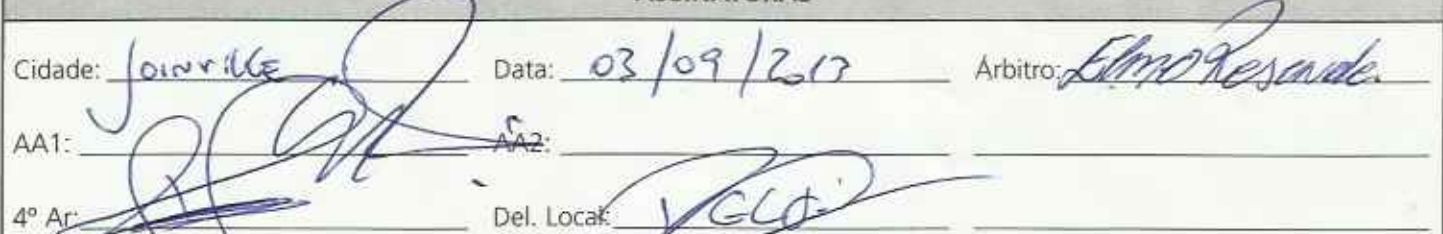 Cidade: Joinville Data: 03/09/2013 Arbitro: Elmo Resende
AA1: AA2:
4º Ar: Del. Local: